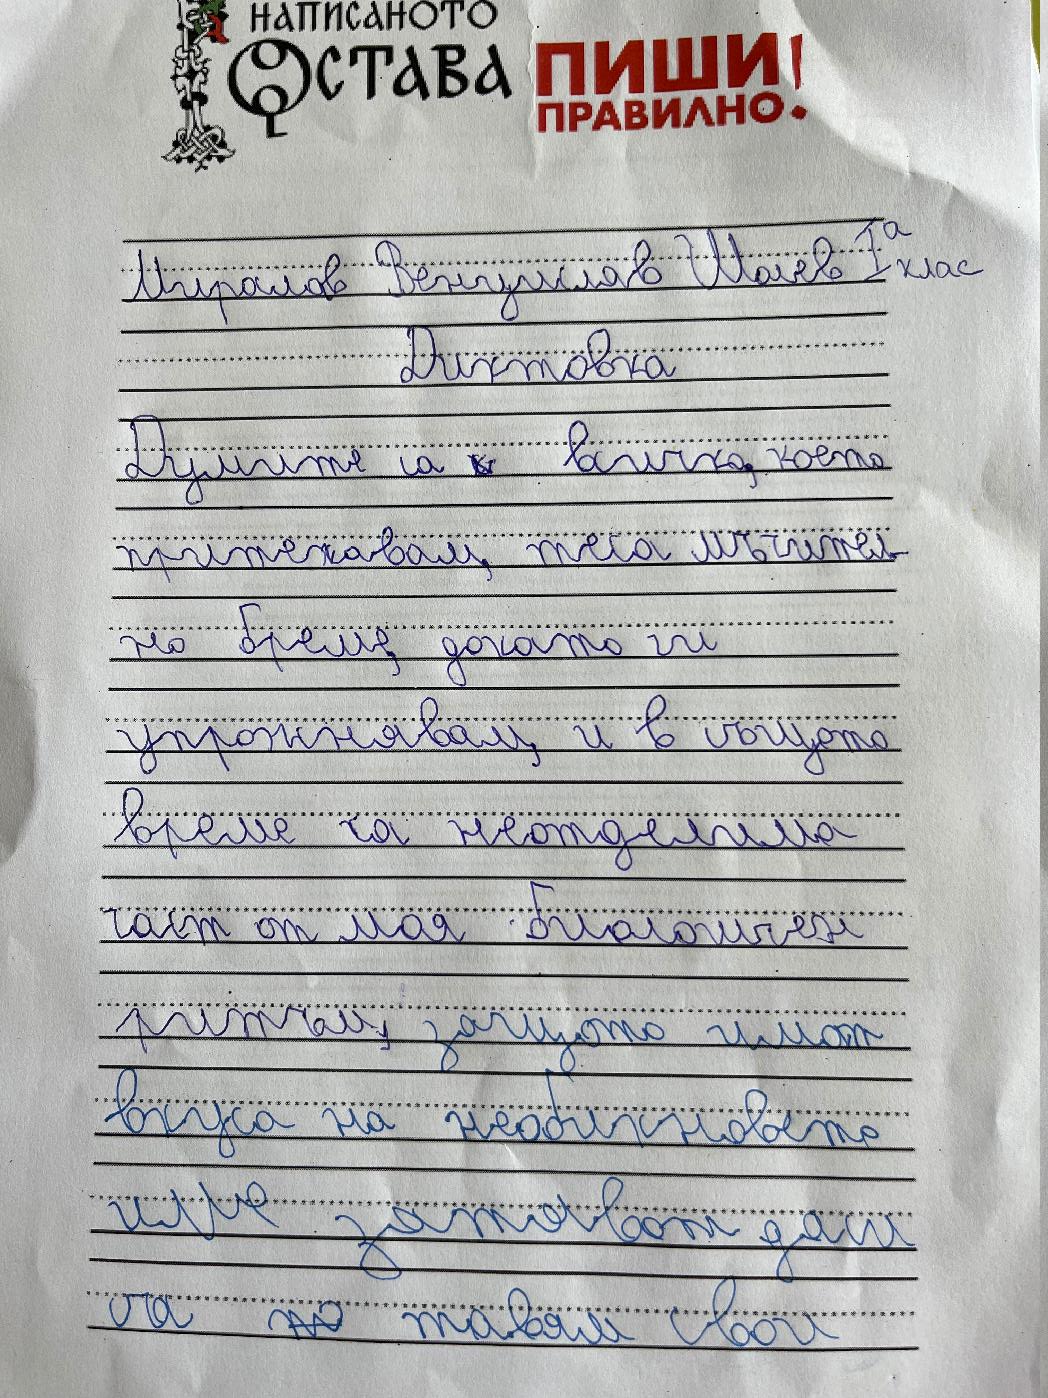 НАПИСАНОТО
ОСТАВА ПИШИ!
ПРАВИЛНО.
Миралов Венцислав Iа
клас
Диктовка
Думите са всичко, което
притежавам, те са мъчител-
но бреме, докато ги
упражнявам, и в същото
време са неотделима
част от моя биологичен
ритъм, защото имат
вкуса на необикновено
затоват даш
са тавям свои